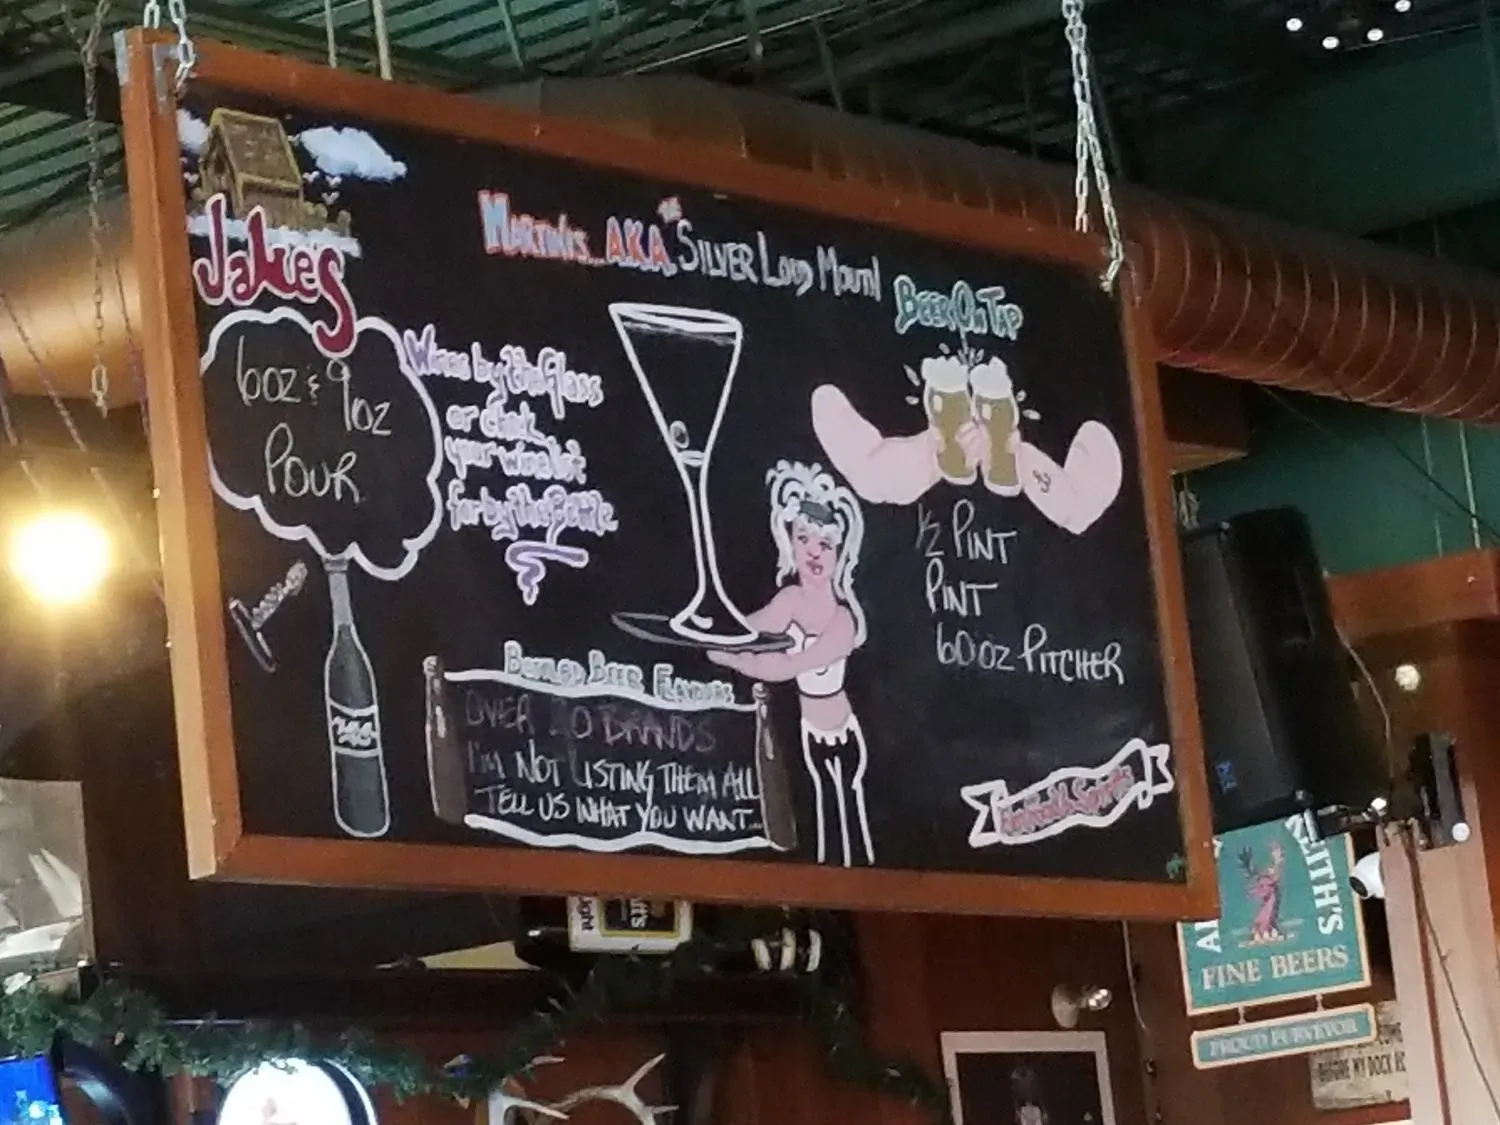 Jakes
MARTINIS...A.K.A. THE SILVER LOUD MOUTH
BEER ON TAP
6oz & 9oz
POUR
Wines by the Glass
or check
your wine list
for by the Bottle
1/2 PINT
PINT
60 oz PITCHER
BOTTLED BEER FLAVOURS
OVER 20 BRANDS
I'M NOT LISTING THEM ALL
TELL US WHAT YOU WANT...
Light
ITH'S
FINE BEERS
PROUD PURVEYOR